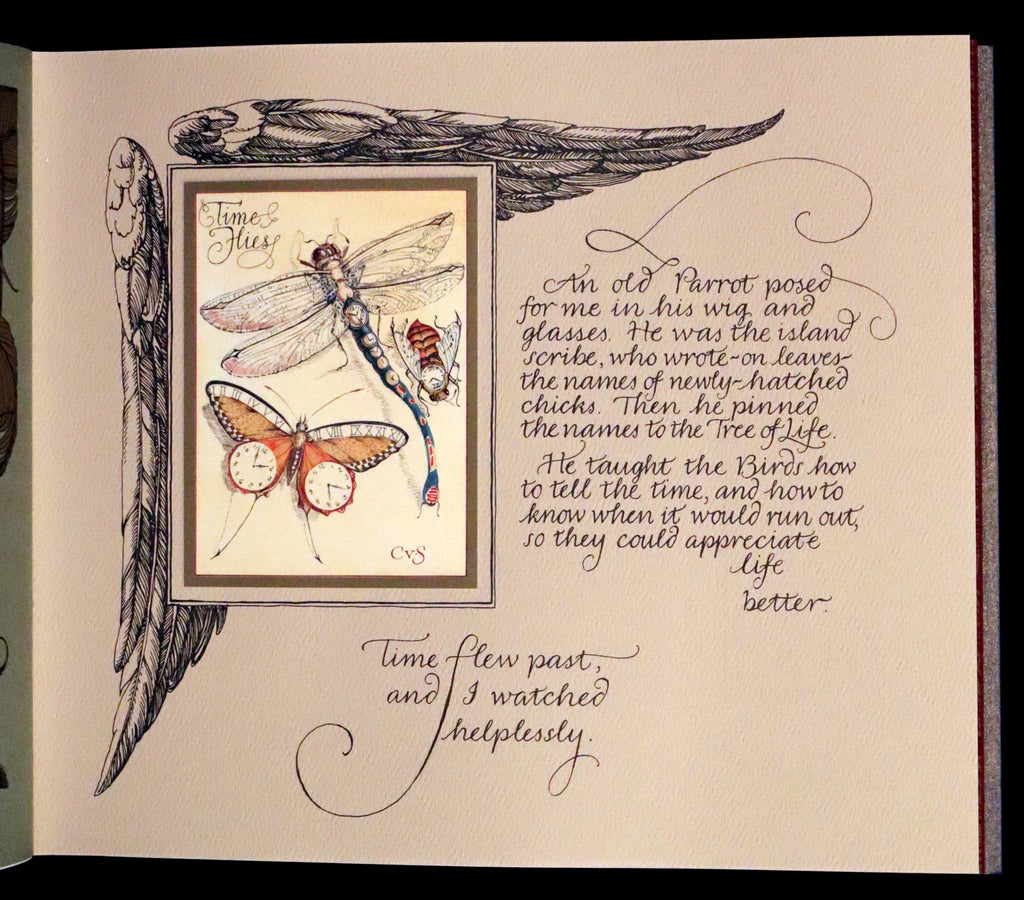 Time
Flies
CvS
An old Parrot posed
for me in his wig and
glasses. He was the island
scribe, who wrote-on leaves-
the names of newly-hatched
chicks. Then he pinned
the names to the Tree of Life.
He taught the Birds how
to tell the time, and how to
know when it would run out,
so they could appreciate
life
better.
Time flew past,
and I watched
helplessly.